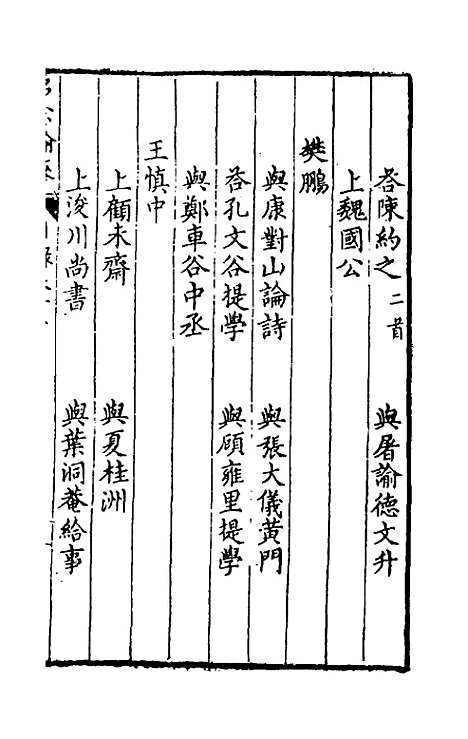 答陳約之 二首　與屠諭德文升
上魏國公
樊鵬
與康對山論詩　與張大儀黃門
答孔文谷提學　與顧雍里提學
與鄭車谷中丞
王慎中
上顧未齋　與夏桂洲
上浚川尚書　與葉洞菴給事